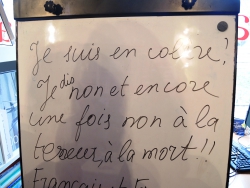 Je suis en colère !
Je dis non et encore
une fois non à la
terreur, à la mort !!
Français